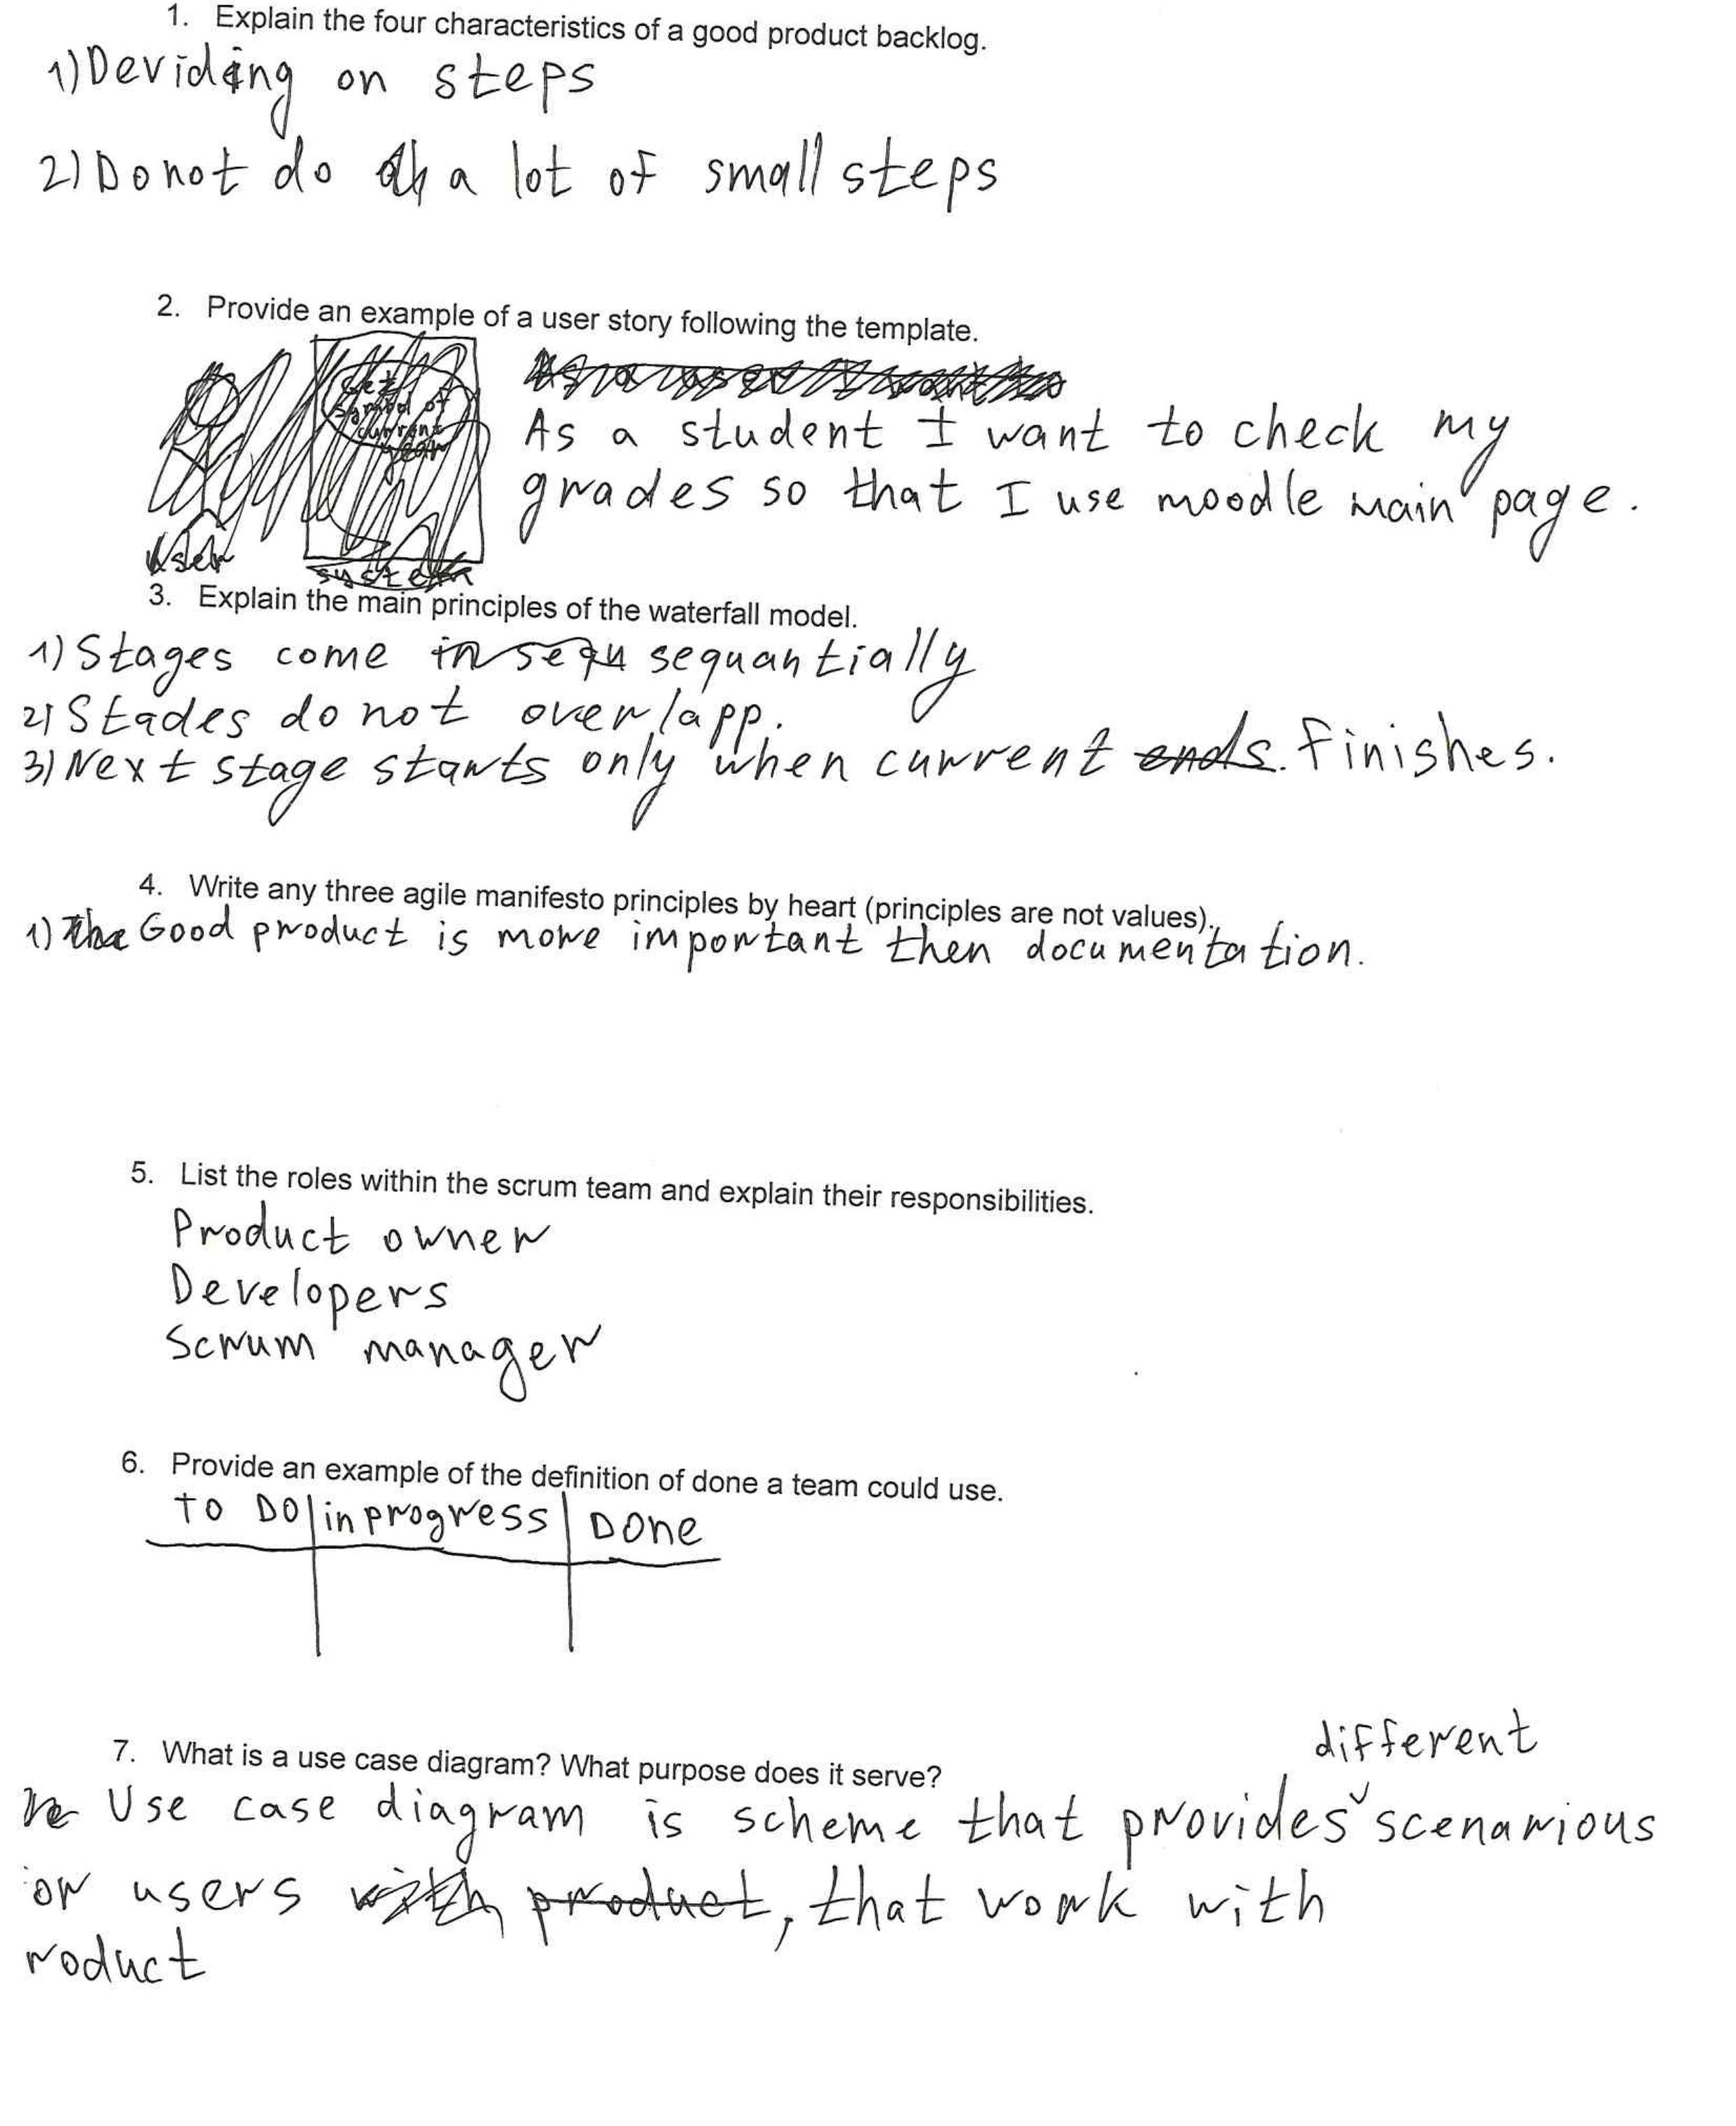 1. Explain the four characteristics of a good product backlog.
1) Deviding on steps
2) Do not do a lot of small steps
2. Provide an example of a user story following the template.
As a user I want to
get symbol of current year
As a student I want to check my
grades so that I use moodle main page.
User
system
3. Explain the main principles of the waterfall model.
1) Stages come in sequ sequantially
2) Stades do not overlapp.
3) Next stage starts only when current ends. finishes.
4. Write any three agile manifesto principles by heart (principles are not values).
1) The Good product is more important then documentation.
5. List the roles within the scrum team and explain their responsibilities.
Product owner
Developers
Scrum manager
6. Provide an example of the definition of done a team could use.
TO DO in progress Done
7. What is a use case diagram? What purpose does it serve?
different
Use case diagram is scheme that provides scenarious
or users with product, that work with
roduct